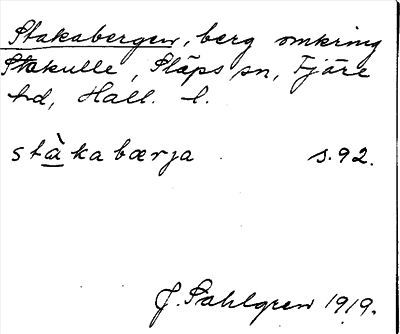 Stakabergen, berg omkring
Stakulle, Släps sn, Fjäre
hd, Hall. l.
stàka bærja s. 92.
J. Sahlgren 1919.